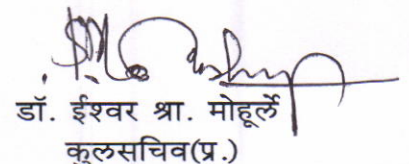 डॉ. ईश्वर श्रा. मोहूर्ले
कुलसचिव(प्र.)